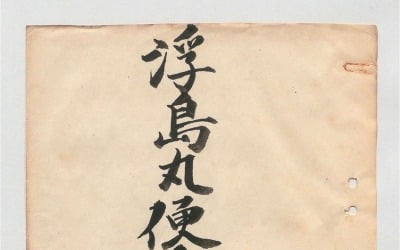 浮島丸便